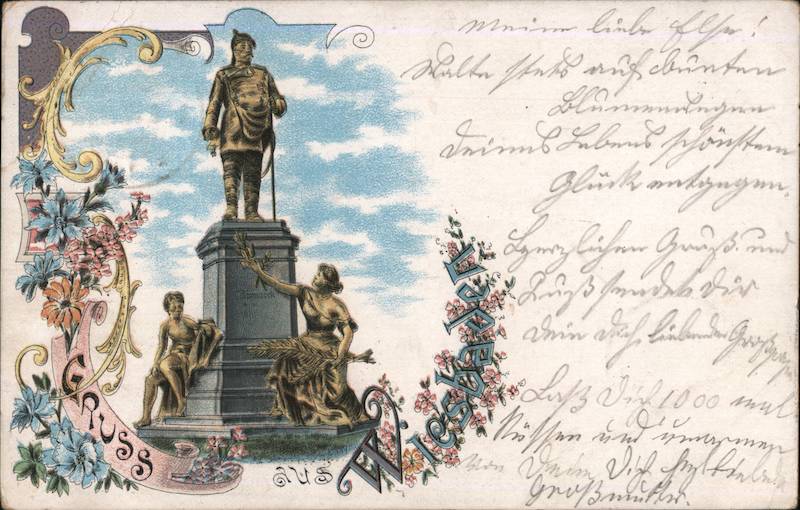 Gruss
aus
Wiesbaden
Bismarck
Meine liebe Else!
Walle stets auf bunten
Blumenwegen
Deines Lebens schönstem
Glück entgegen.
Herzlichen Gruß und
Kuß sendet Dir
Dein Dich liebender Großpapa
Laß Dich 1000 mal
Küssen und umarmen
von Deiner Dich liebenden
Großmutter.